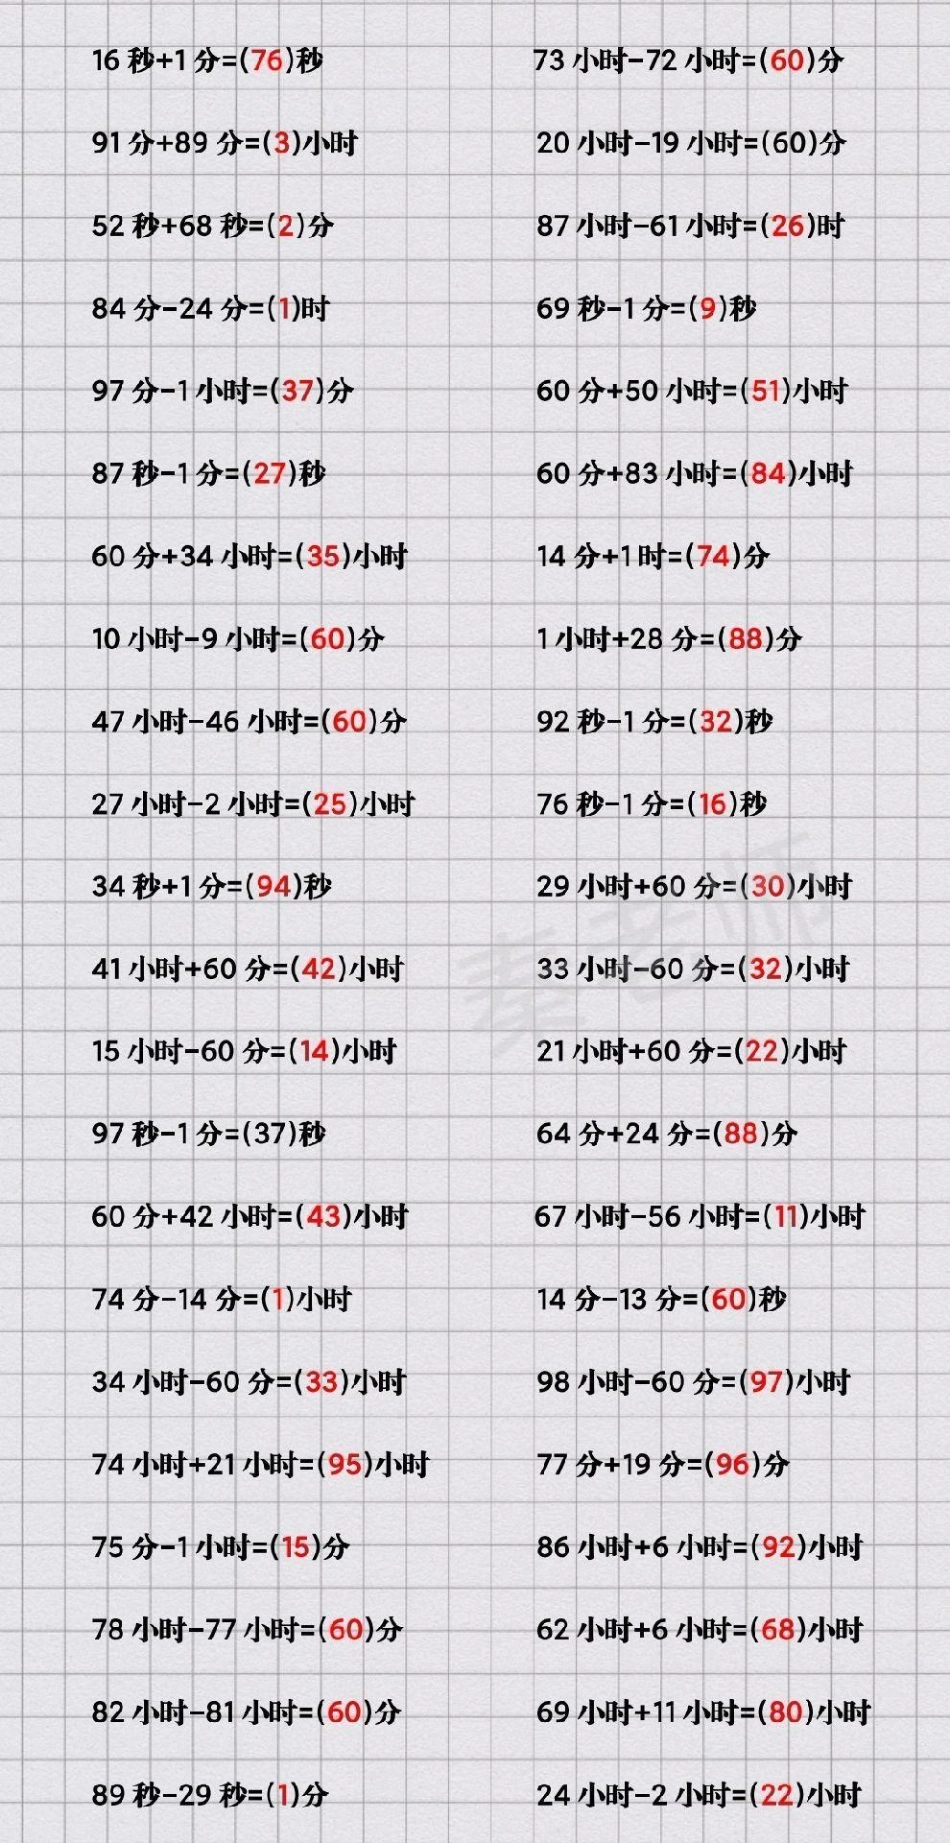 16 秒+1 分=(76)秒 73 小时-72 小时=(60)分
91 分+89 分=(3)小时 20 小时-19 小时=(60)分
52 秒+68 秒=(2)分 87 小时-61 小时=(26)时
84 分-24 分=(1)时 69 秒-1 分=(9)秒
97 分-1 小时=(37)分 60 分+50 小时=(51)小时
87 秒-1 分=(27)秒 60 分+83 小时=(84)小时
60 分+34 小时=(35)小时 14 分+1 时=(74)分
10 小时-9 小时=(60)分 1 小时+28 分=(88)分
47 小时-46 小时=(60)分 92 秒-1 分=(32)秒
27 小时-2 小时=(25)小时 76 秒-1 分=(16)秒
34 秒+1 分=(94)秒 29 小时+60 分=(30)小时
41 小时+60 分=(42)小时 33 小时-60 分=(32)小时
15 小时-60 分=(14)小时 21 小时+60 分=(22)小时
97 秒-1 分=(37)秒 64 分+24 分=(88)分
60 分+42 小时=(43)小时 67 小时-56 小时=(11)小时
74 分-14 分=(1)小时 14 分-13 分=(60)秒
34 小时-60 分=(33)小时 98 小时-60 分=(97)小时
74 小时+21 小时=(95)小时 77 分+19 分=(96)分
75 分-1 小时=(15)分 86 小时+6 小时=(92)小时
78 小时-77 小时=(60)分 62 小时+6 小时=(68)小时
82 小时-81 小时=(60)分 69 小时+11 小时=(80)小时
89 秒-29 秒=(1)分 24 小时-2 小时=(22)小时
秦老师